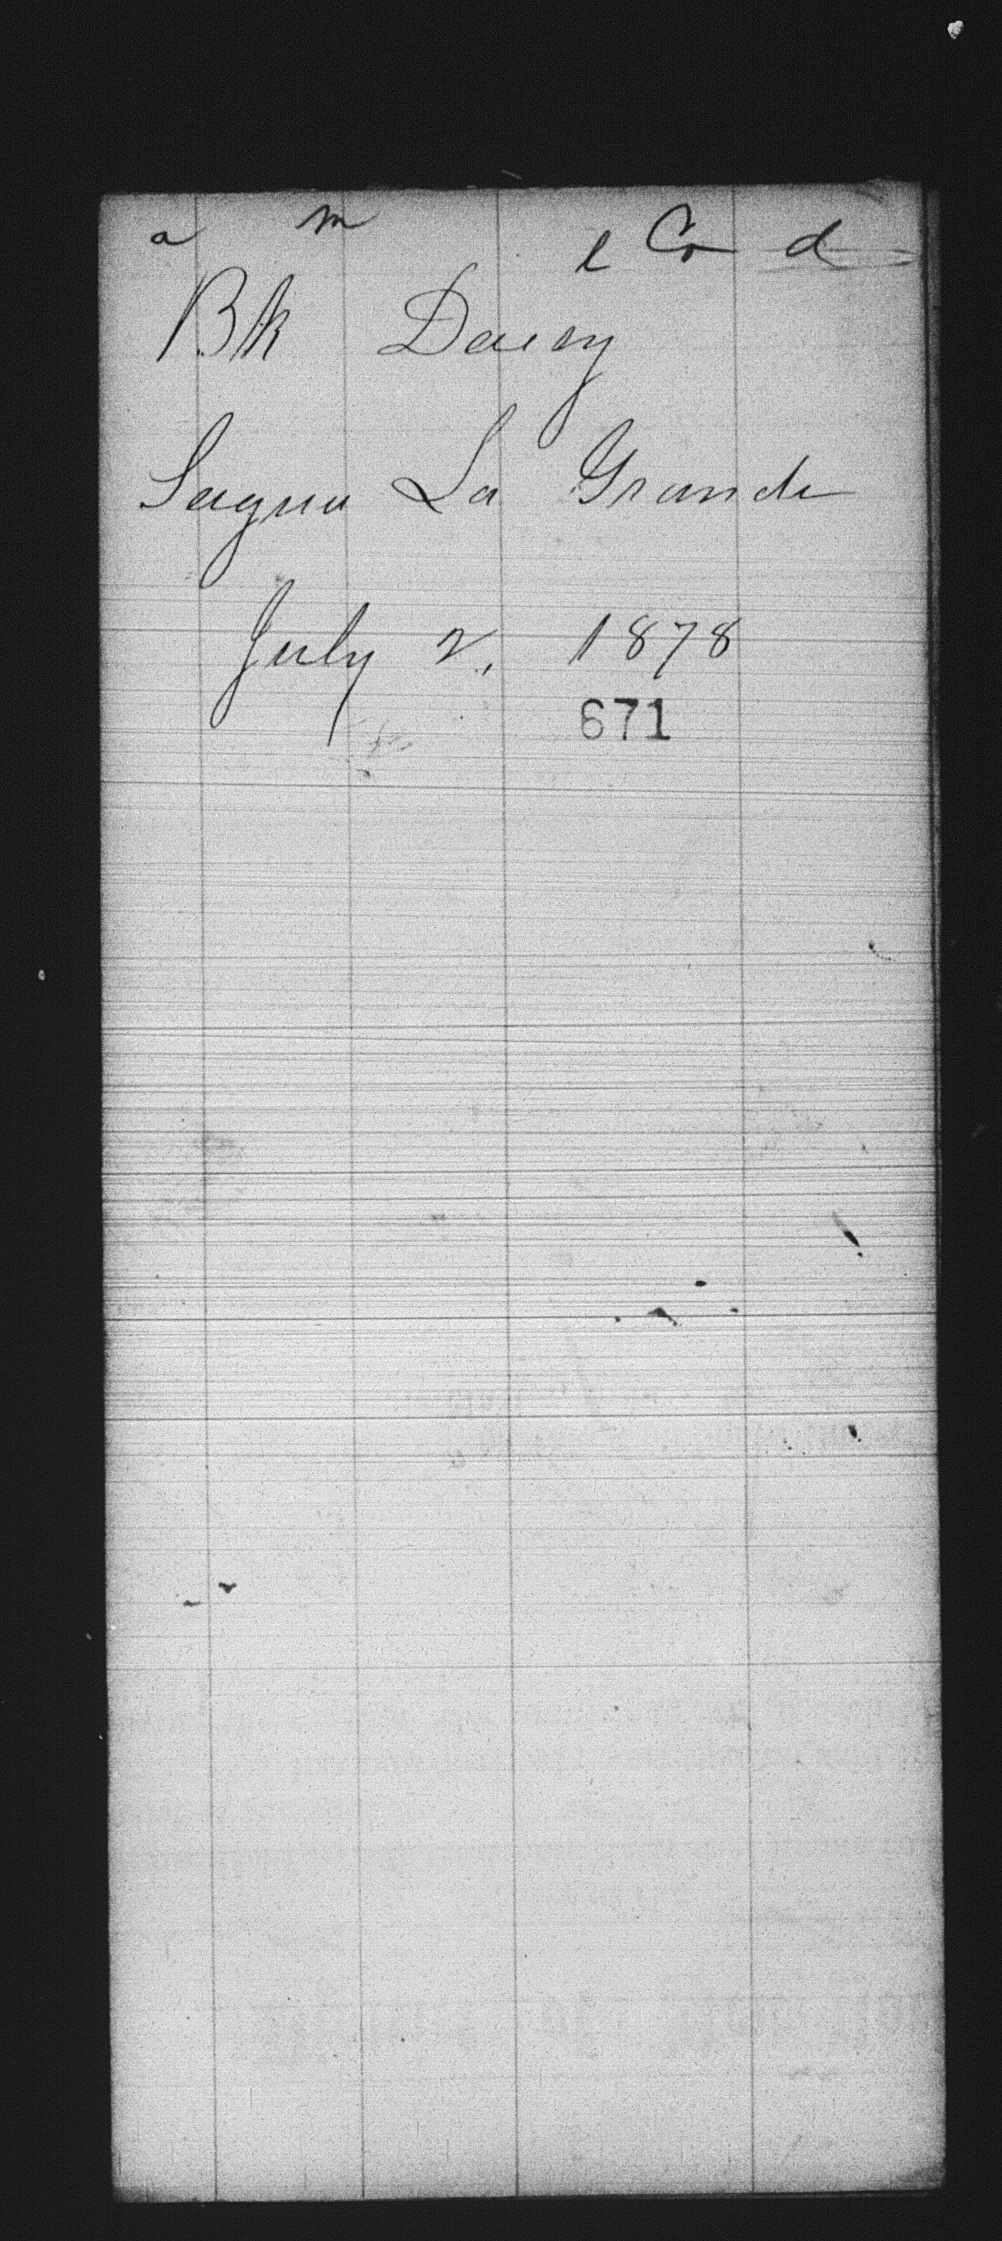 a m l Co d
Bk Daisy
Sagua La Grande
July 2, 1878
671